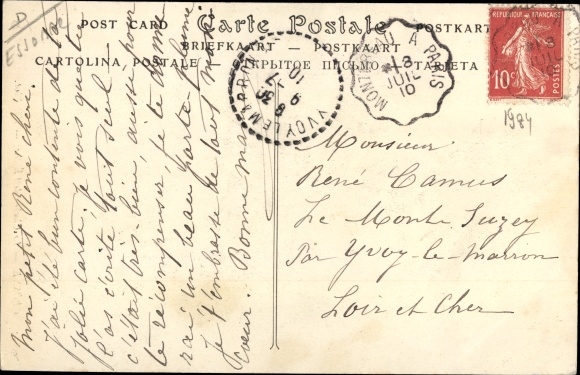 D
Essonne
POST CARD Carte Postale POSTKARTE
BRIEFKAART — POSTKAART
CARTOLINA POSTALE
ОТКРЫТОЕ ПИСЬМО
TARJETA
MONTARGIS À PARIS
18
JUIL
10
YVOY LE MARRON
9 -7
10
REPUBLIQUE FRANÇAISE
10c
POSTES
1984
Monsieur
René Camus
Le Monte Suzey
Par Yvoy-le-Marron
Loir et Cher
Mon petit René chéri.
J'ai été bien contente de ta
jolie carte; je vois que tu
l'as écrite tout seul
c'était très-bien, aussi pour
te récompenser, je te donne
rai un beau
Je t'embrasse de tout mon
coeur. Bonne maman